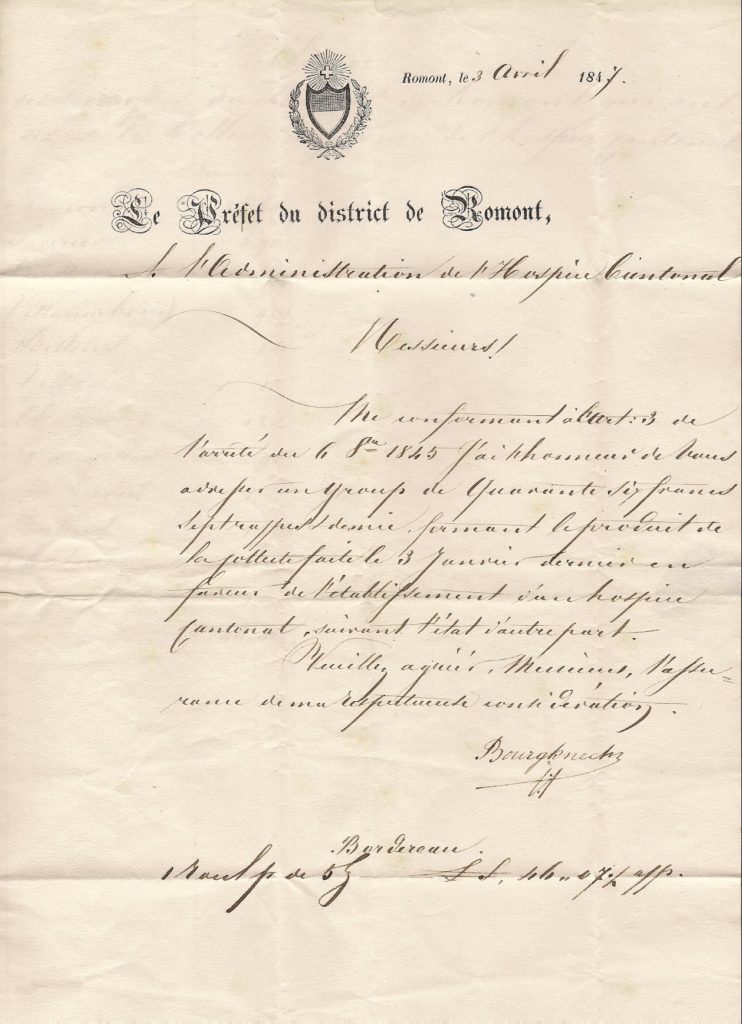 Romont, le 3 Avril 1847.
Le Préfet du district de Romont,
A l'Administration de l'Hospice Cantonal
Messieurs!
Me conformant à l'art: 3 de
l'arrêté du 6 8bre 1845 j'ai l'honneur de vous
adresser un Group de Quarante six francs
sept rappes & demie, formant le produit de
la collecte faite le 3 Janvier dernier en
faveur de l'établissement d'un hospice
cantonal, suivant l'état d'autre part.
Veuillez agréer, Messieurs, l'assu=
rance de ma respectueuse considération.
Bourgknecht
Bordereau.
1 de 46 " 07½ rapp.